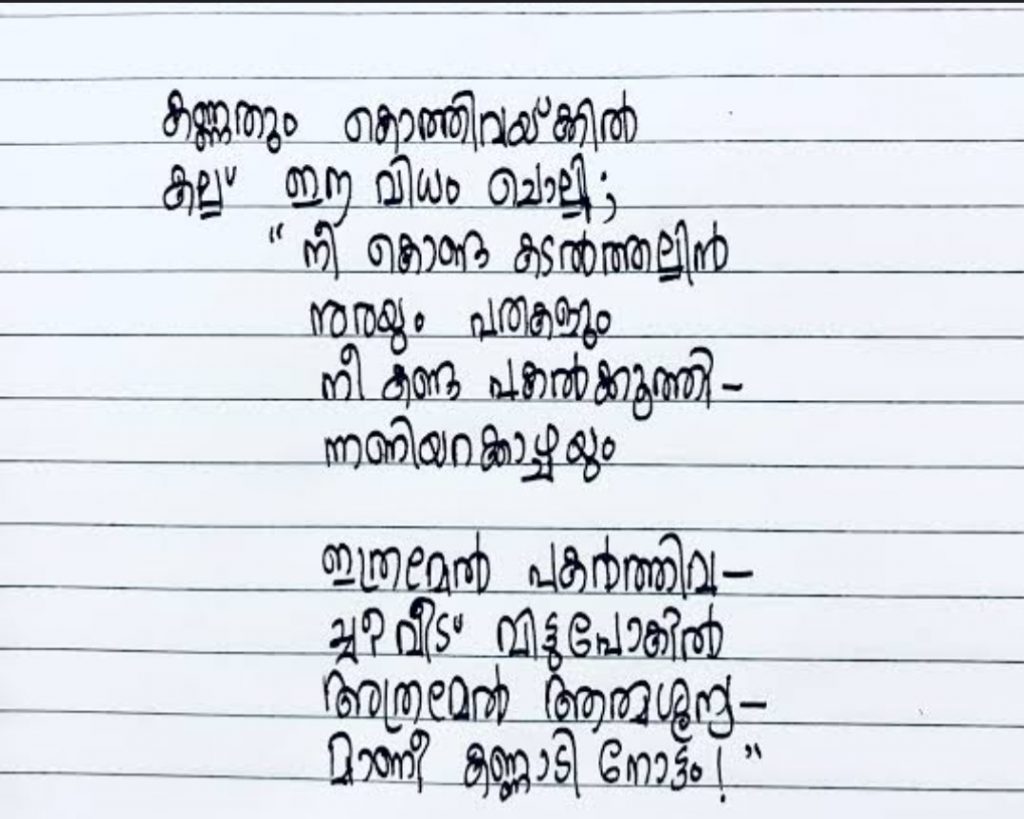 കണ്ണതും കൊത്തിവയ്ക്കിൽ
കല്ല് ഈ വിധം ചൊല്ലി;
“ നീ കൊണ്ട കടൽത്തല്ലിൻ
നുരയും പതകളും
നീ കണ്ട പകൽക്കുത്തി–
ന്നണിയറക്കാഴ്ചയും
ഇത്രമേൽ പകർത്തിവ–
ച്ചീ വീട് വിട്ടുപോകിൽ
അത്രമേൽ ആത്മശൂന്യ–
മാണീ കണ്ണാടി നോട്ടം! ”